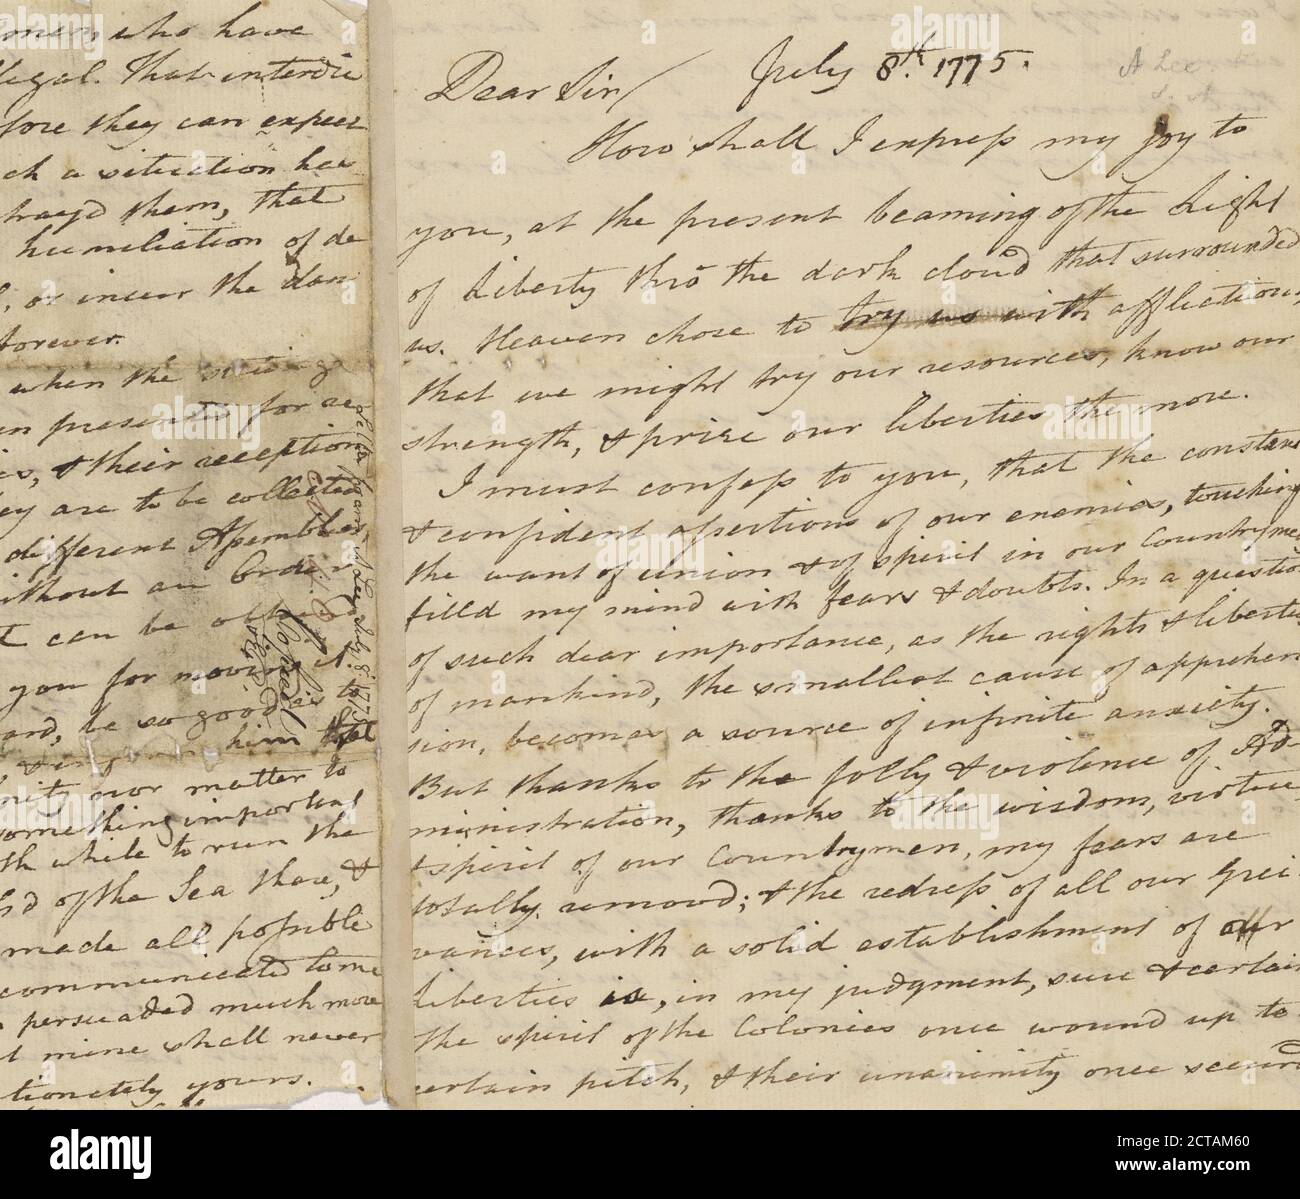 men, who have
legal. That interdic
fore they can expect
ch a situation has
trayd them, that
humiliation of de
, or incur the dan
forever.
when the
en presented for re
es, & their reception
ey are to be collected
different Assemblies
ithout an Order
t can be
you for moving it
ard, be so good as to
him that
nity nor matter to
something important
th while to run the
ld of the Sea thore, &
made all possible
communicated to me
persuaded much more
t mine shall never
tionately yours.
Letter from A Lee July 8. 1775
Copied
July 8th. 1775.
A Lee.
Dear Sir/
How shall I express my joy to
you, at the present beaming of the Light
of Liberty thro the dark cloud that surrounded
us. Heaven chose to try us with afflictions,
that we might try our resources, know our
strength, & prize our liberties the more.
I must confess to you, that the constant
& confident assertions of our enemies, touching
the want of union & of spirit in our Countrymen
filld my mind with fears & doubts. In a question
of such dear importance, as the rights & liberties
of mankind, the smallest cause of apprehen
sion, becomes a source of infinite anxiety.
But thanks to the folly & violence of Ad-
ministration, thanks to the wisdom, virtue
& spirit of our Countrymen, my fears are
totally removd; & the redress of all our Grei-
vances, with a solid establishment of our
Liberties is, in my judgment, sure & certain
the spirit of the Colonies once wound up to
certain pitch, & their unanimity once secured
alamy
Image ID: 2CTAM60
www.alamy.com